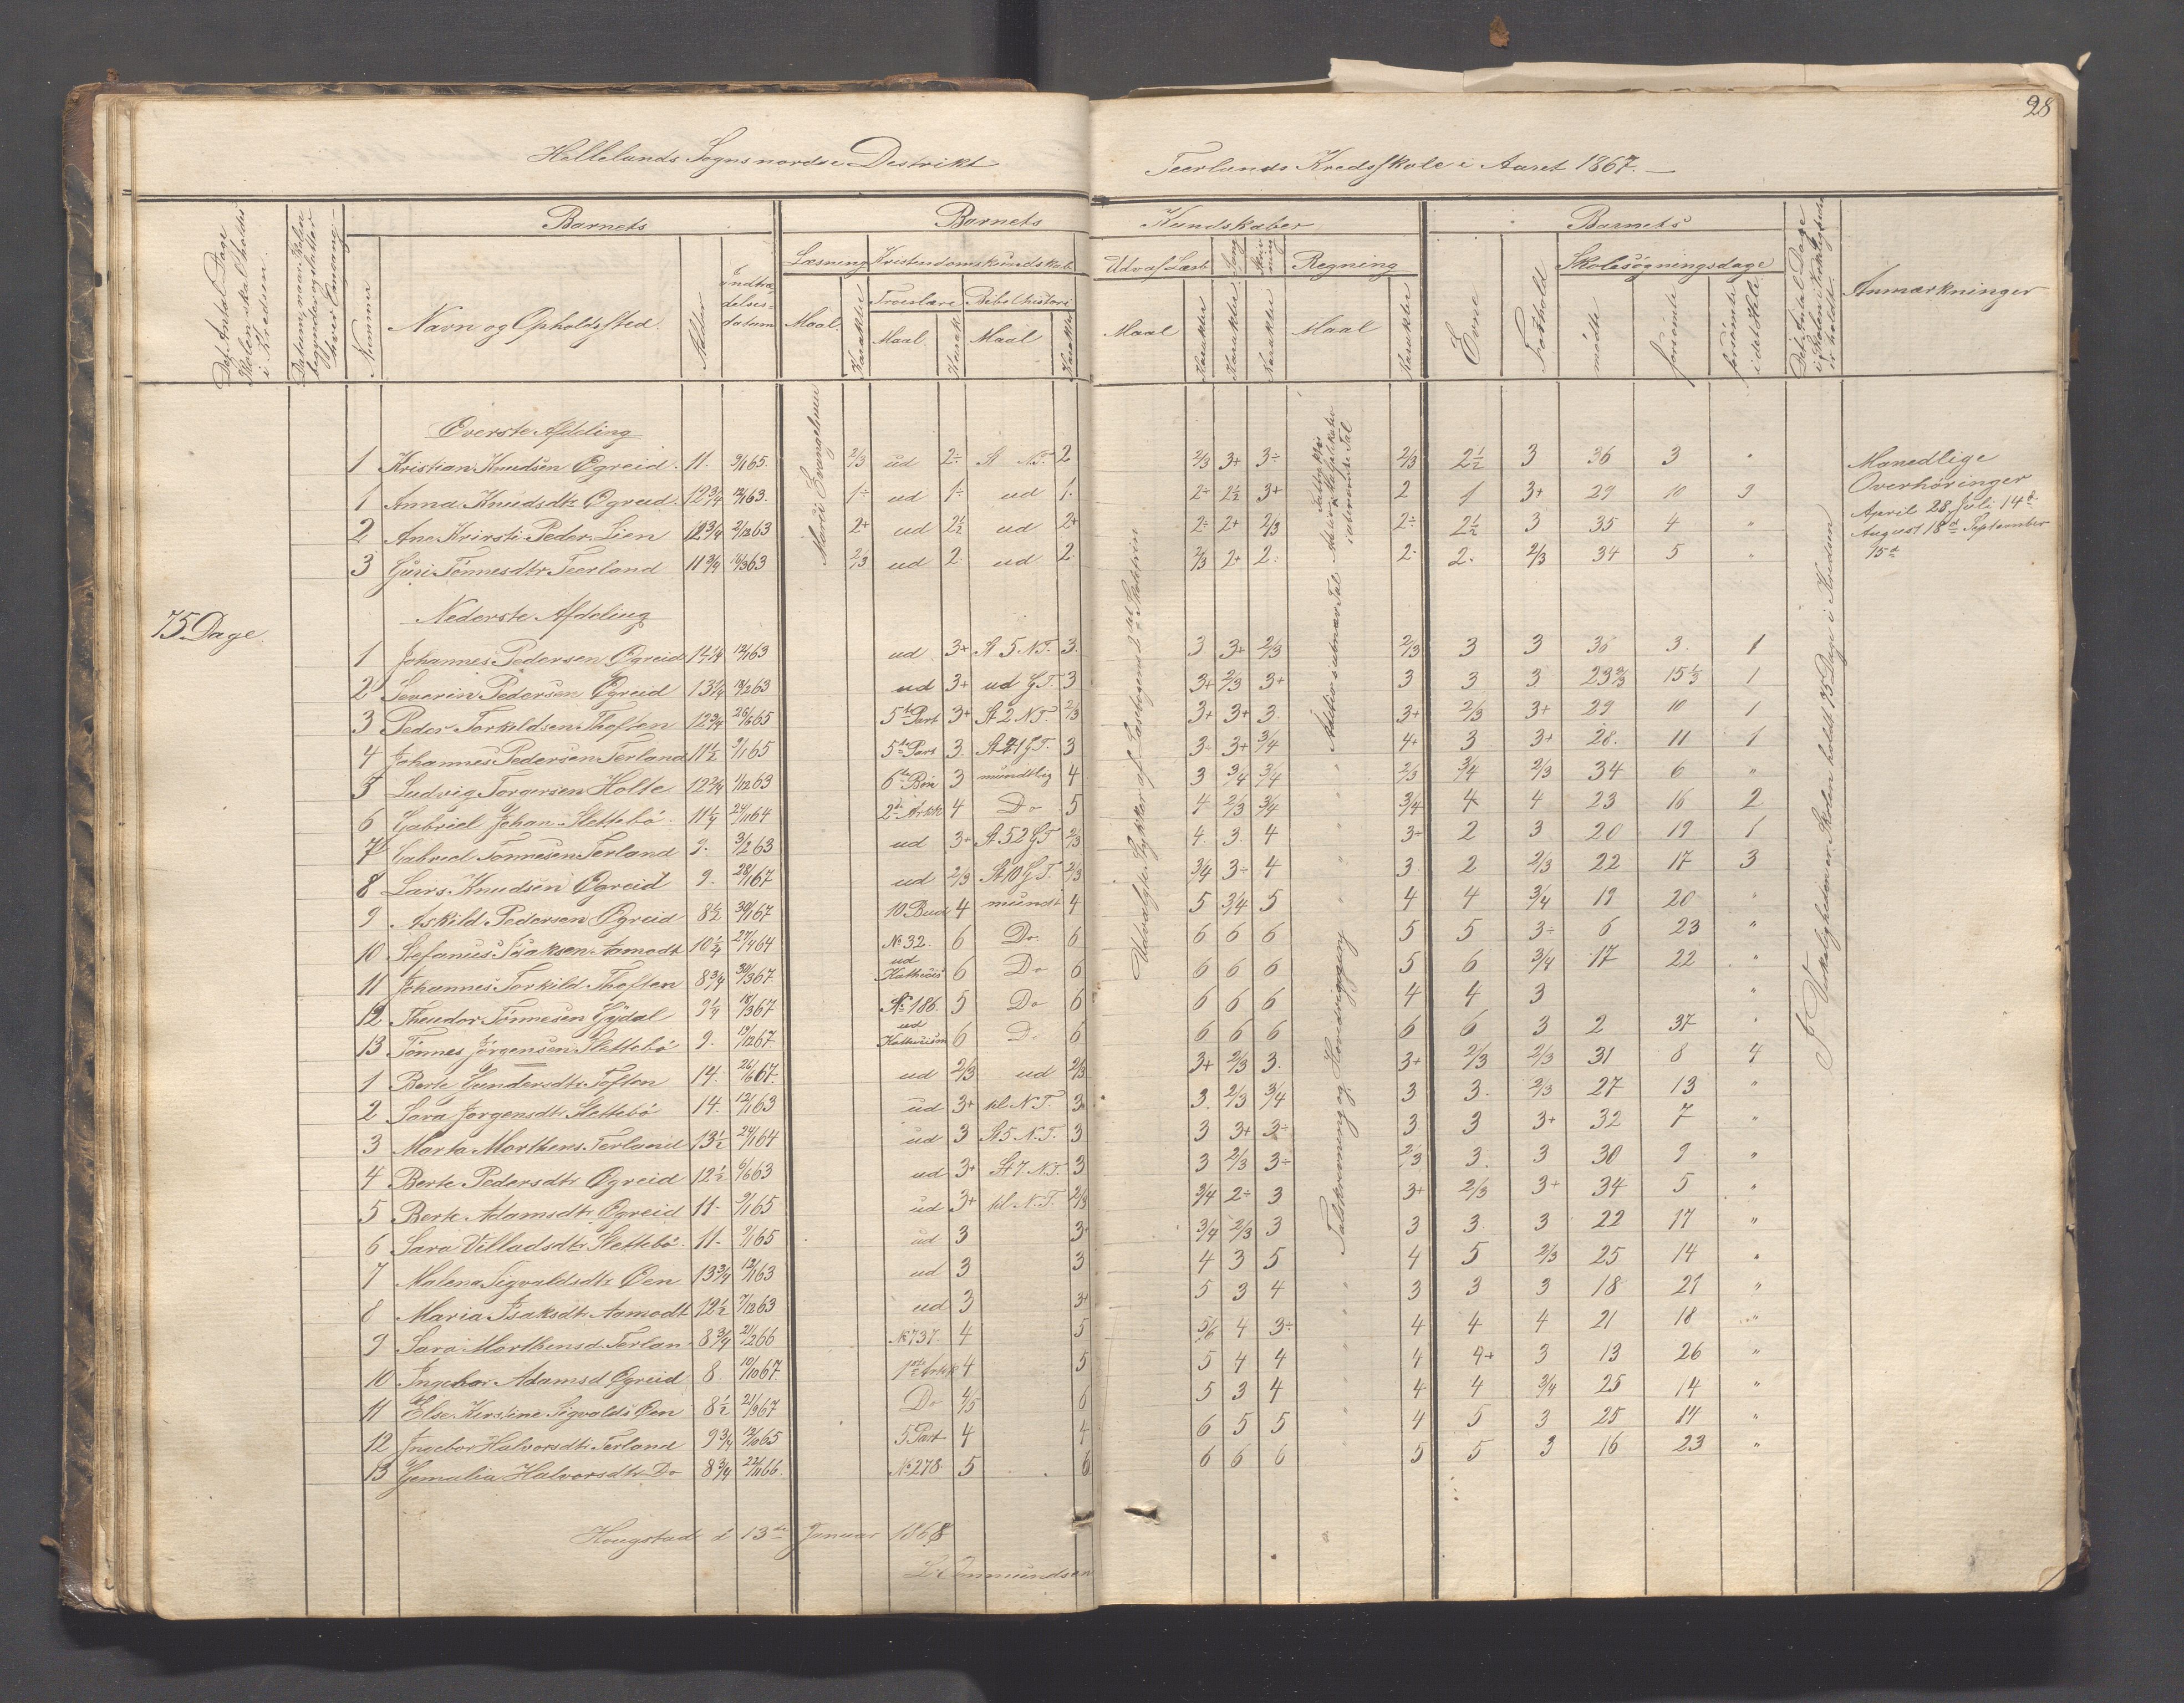 28
Hellelands Sogns nordre Destrikt
Teerlands Kredsskole i Aaret 1867.
Det Antal Dage Skolen skal holdes i Kredsen.
Datum, naar Skolen begynder og slutter hver Omgang
Barnets
Nummer
Navn og Opholdssted.
Alder
Indtrædelsesdatum
Barnets
Kundskaber
Læsning
Kristendomskundskab
Maal.
Karakter
Troeslære
Maal.
Karakt
Bibelhistori
Maal
Karakter
Udv af Læseb
Maal
Karakter
Sang
Karakter
Skrivning
Karakter
Regning
Maal
Karakter
Barnets
Evne
Forhold
Skolesøgningsdage
mødte
forsømte
forsømte i det Hele
Det Antal Dage Skolen i Virkeligheden er holdt
Anmærkninger
75 Dage.
Mariæ Evangelium
Udvalgte Stykker af Læsbogens 2det Skoletrin
Addition i ubenævnte Tal
Talskrivning og Hovedregning
I Virkeligheden er Skolen holdt 75 Dage i Kredsen
Øverste Afdeling
1 Kristian Knudsen Øgreid. 11. 9/1 65. 2/3 ud 2÷ St NT. 2 2/3 3+ 3÷ 2/3 2½ 3 36 3 "
1 Anna Knudsdtr Øgreid. 12¾ 12/1 63. 1÷ ud 1÷ ud 1. 2÷ 2½ 3+ 2 1 3+ 29 10 9
2 Ane Kristi Peder. Lien 12¾ 2/12 63 2+ ud 2½ ud 2+ 2÷ 2+ 2/3 2÷ 2½ 3 35 4 "
3 Guri Tønnesdtr Teerland 11¾ 14/3 63 2/3 ud 2. ud 2. 2/3 2+ 2. 2- 2. 2/3 34 5 "
Manedlige
Overhøringer
April 28, Juli 14de
August 18de September
15de
Nederste Afdeling
1 Johannes Pedersen Øgreid 14¼ 12/1 63 ud 3+ St 5 NT. 3. 3 3+ 2/3 2/3 3 3 36 3. 1
2 Severin Pedersen Øgreid 13¼ 12/2 63 ud 3+ ud GT. 3 3+ 2/3 3+ 3 3 3 23⅔ 15⅓ 1
3 Peder Torkildsen Thoften 12¾ 26/6 65 5te Part 3+ St 2 NT. 2/3 3+ 3+ 3. 3+ 2/3 3+ 29 10 1
4 Johannes Pedersen Terland 11½ 9/1 65 5te Part 3. St 21 GT. 3 3÷ 3+ 3/4 4+ 3 3+ 28. 11 1
5 Ludvig Torgersen Holte 12¾ 1/12 63 6te Bøn 3 mundtlig 4 3 3/4 3/4 2/3 3/4 2/3 34 6 "
6 Gabriel Johan. Slettebö 11¼ 24/11 64 2de Artik 4 Do 5 4 2/3 3/4 3/4 4 4 23 16 2
7 Gabriel Tønnesen Terland 9. 3/12 63 ud 3+ St 52 GT 2/3 4. 3. 4 3÷ 2 3 20 19 1
8 Lars Knudsen Øgreid 9. 28/1 67 ud 2/3 St 10 GT. 2/3 3/4 3÷ 4 3 2 2/3 22 17 3
9 Askild Pedersen Øgreid 8½ 30/1 67 10 Bud 4 mundt 4 5 3/4 5 4 4 3/4 19 20 "
10 Stefanus Isaksen Aamodt 10½ 27/4 64 No 32. 6 Do 6 6 6 6 5 5 3÷ 6 23 "
11 Johannes Torkild. Thoften 8¾ 30/3 67. ud Kathecis 6 Do 6 6 6 6 5 6 3/4 17 22 "
12 Theodor Tønnesen Gydal 9¼ 18/3 67 No 186. 5 Do 6 6 6 6 4 4 3 "
13 Tønnes Jørgensen Slettebö 9. 19/12 67 ud Kathecism 6 Do 6 6 6 6 6 6 3 2 37 "
1 Berte Gundersdtr Toften 14. 26/6 67. ud 2/3 ud 2/3 3+ 2/3 3. 3+ 2/3 2/3 31 8 4
2 Sara Jørgensdtr Slettebö 14. 12/1 63 ud 3+ kl NT. 3. 3. 2/3 3/4 3 3. 2/3 27 13 "
3 Marta Morthens. Terland 13½ 24/1 64 ud 3 St 5 N.T. 3 3 3+ 3÷ 3 3 3+ 32 7 "
4 Berte Pedersdtr Øgreid 12½ 6/6 63 ud 3+ St 7 NT. 3 3 2/3 3÷ 2/3 3. 3 30 9 "
5 Berte Adamsdtr Øgreid 11- 9/1 65 ud 3+ kl NT. 2/3 3/4 2÷ 3 3+ 2/3 3+ 34 5 "
6 Sara Villadsdtr Slettebö 11- 9/1 65 ud 3 3+ 3/4 2/3 3 3 3. 3 22 17 "
7 Malena Sigvaldsdtr Øen 13¾ 12/1 63 ud 3 3 4 3 5 4 5 2/3 25 14 "
8 Maria Isaksdtr Aamodt 12½ 7/12 63 ud 3 3+ 5 3 4 3 3 3 18 21 "
9 Sara Morthensd. Terlan 8¾ 21/2 66 No 737. 4 5 5/6 4 3÷ 4 4 4 21 18 "
10 Ingebor Adamsd Øgreid 8. 10/10 67. 1ste Artik 4 5 5 4 4 4 4+ 3 13 26 "
11 Else Kirstine Sigvalds Øen 8½ 21/3 67 Do 4/5 6 5 3 4 4 4 3/4 25 14 "
12 Ingebor Halvorsdtr Terland 9¾ 12/10 65 5 Part 4 4 6 5 5 4 5 3 25 14 "
13 Gemalia Halvorsdtr Do 8¾ 22/11 66. No 278. 5 6 6 6 6 5 5 3 16 23 "
Hougstad d 13de Januar 1868
L. Ommundsen